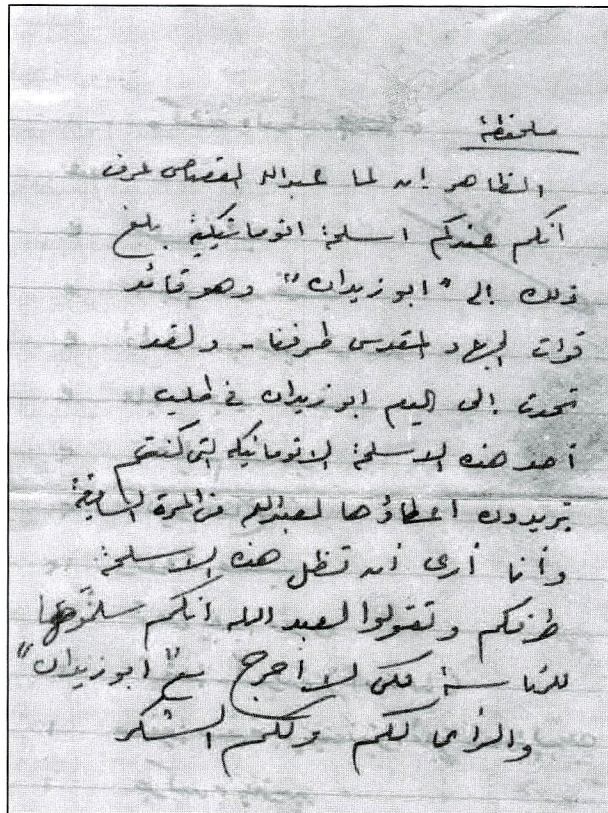 ملحوظة
الظاهر إن لما عبدالله عرف
أنكم عندكم اسلحة اتوماتيكية بلغ
ذلك إلى "ابو زيدان" وهو قائد
قوات الجهاد المقدس طرفنا - ولقد
تحدث إلى اليوم ابو زيدان في طلب
أحد هذه الاسلحة الاتوماتيكية التي كنتم
تريدون اعطاؤها لعبدالله في المرة السابقة
وأنا أرى أن تظل هذه الاسلحة
طرفكم وتقولوا لعبد الله أنكم سلمتوها
للرئاسة لكي لا أحرج مع "ابو زيدان"
والرأى لكم ولكم الشكر